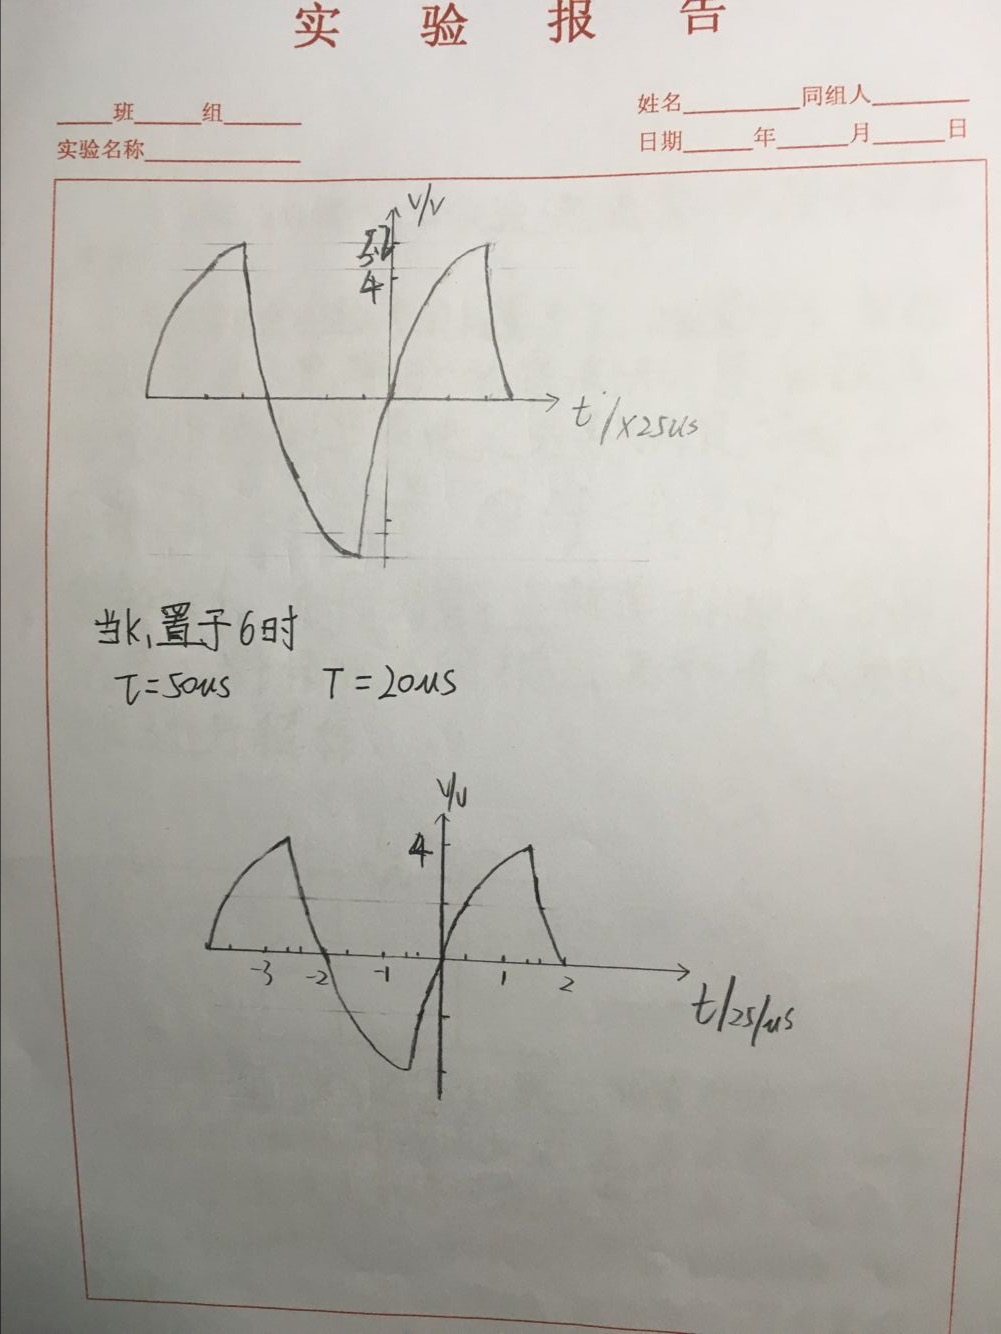 实 验 报 告
班 组
姓名 同组人
实验名称
日期 年 月 日
V/V
5.2
4
t/×25us
当K₁置于6时
τ=50us T=20us
V/V
4
-3 -2 -1 1 2
t/25/us